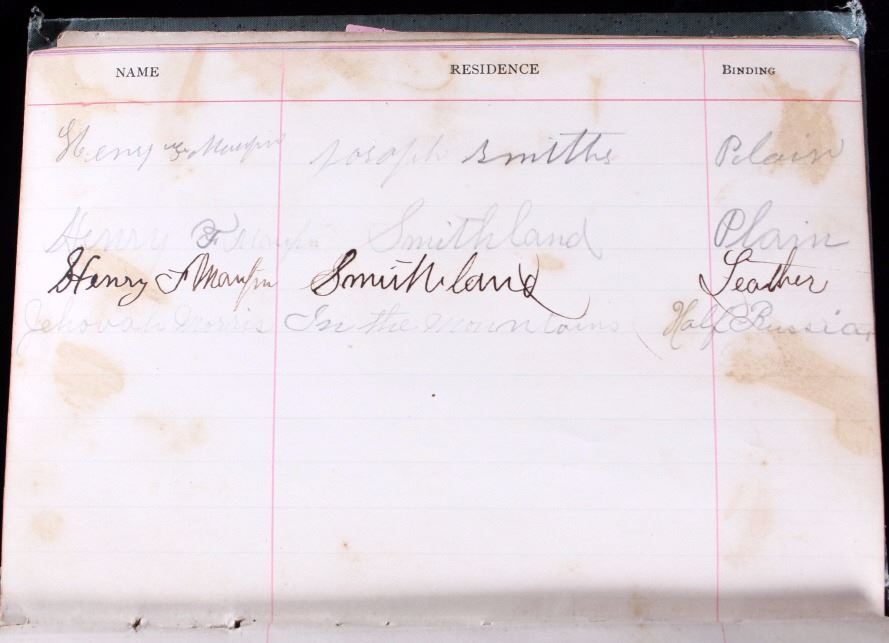 NAME RESIDENCE BINDING
Henry F Maupin Joseph Smiths Plain
Henry F Maupin Smithland Plain
Henry F Maupin Smithland Leather
Jehovah Morris In the Mountains Half Russia